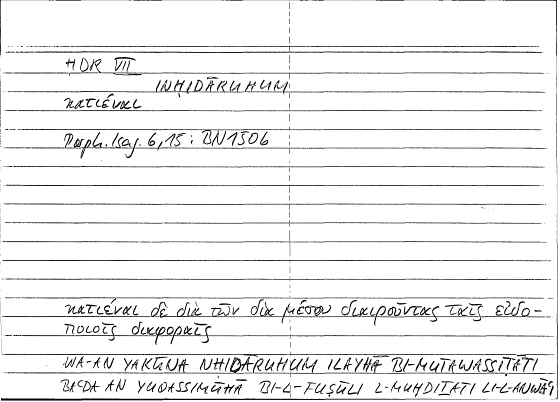 HDR VII
INḤIDĀRUHUM
κατιέναι
Porph. Isag. 6,15 : BN150b
κατιέναι δὲ διὰ τῶν διὰ μέσου διαιροῦντας ταῖς εἰδο-
ποιοῖς διαφοραῖς
WA-AN YAKŪNA NḤIDĀRUHUM ILAYHĀ BI-MUTAWASSIṬĀTI
BAʿDA AN YUQASSIMŪHĀ BI-L-FUṢŪLI L-MUḤDIṮATI LI-L-ANWĀʿI